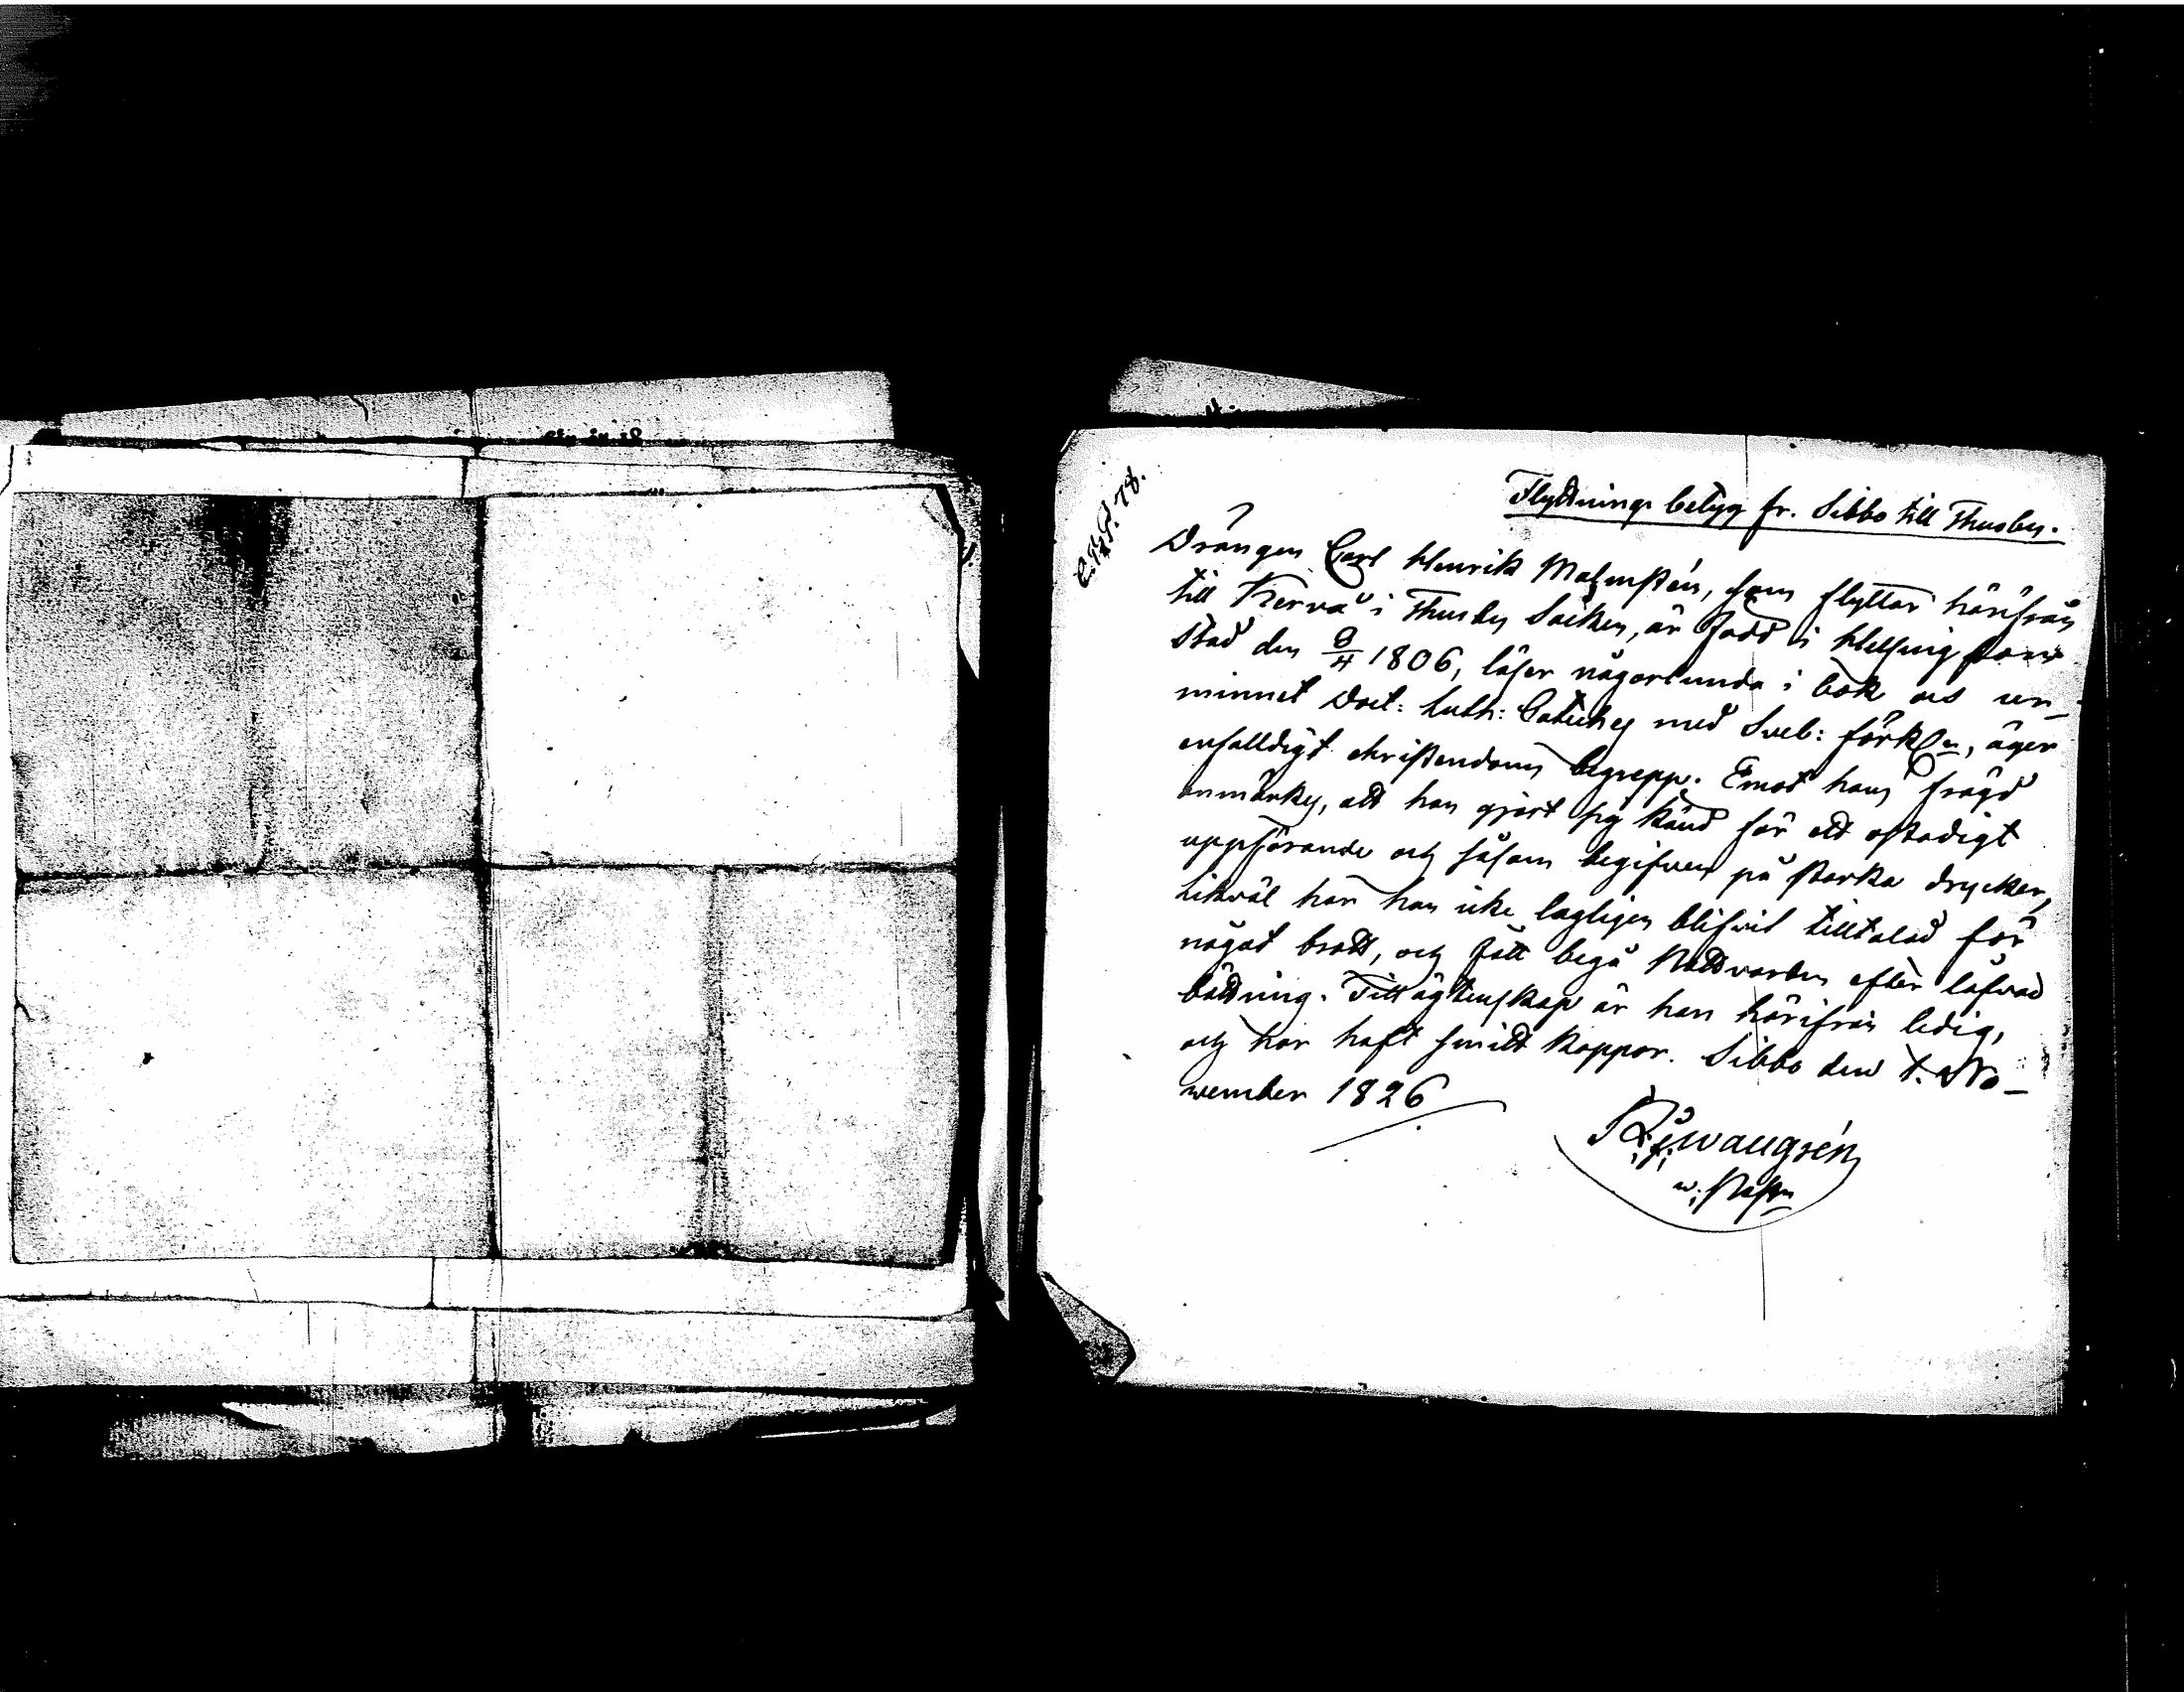 Flyttnings betyg fr. Sibbo till Thusby.
Drängen Carl Henrik Malmstén, som flyttar härifrån
till Kervå i Thusby Socken, är född i Helsingfors
Stad den 2/4 1806, läser någorlunda i bok och ur
minnet Doct: Luth: Catches med Sveb: förkl:n, äger
enfalldigt christendoms begrepp. Emot hans frägd
anmärkes, att han gjort sig känd för ett ostadigt
uppförande och såsom begifven på starka drycker,
Likväl har han icke lagligen blifvit tilltalad för
något brott, och fått begå Nattvarden efter låfvad
bättring. Till ägtenskap är han härifrån ledig,
och har haft smitt koppor. Sibbo den 1. No-
vember 1826